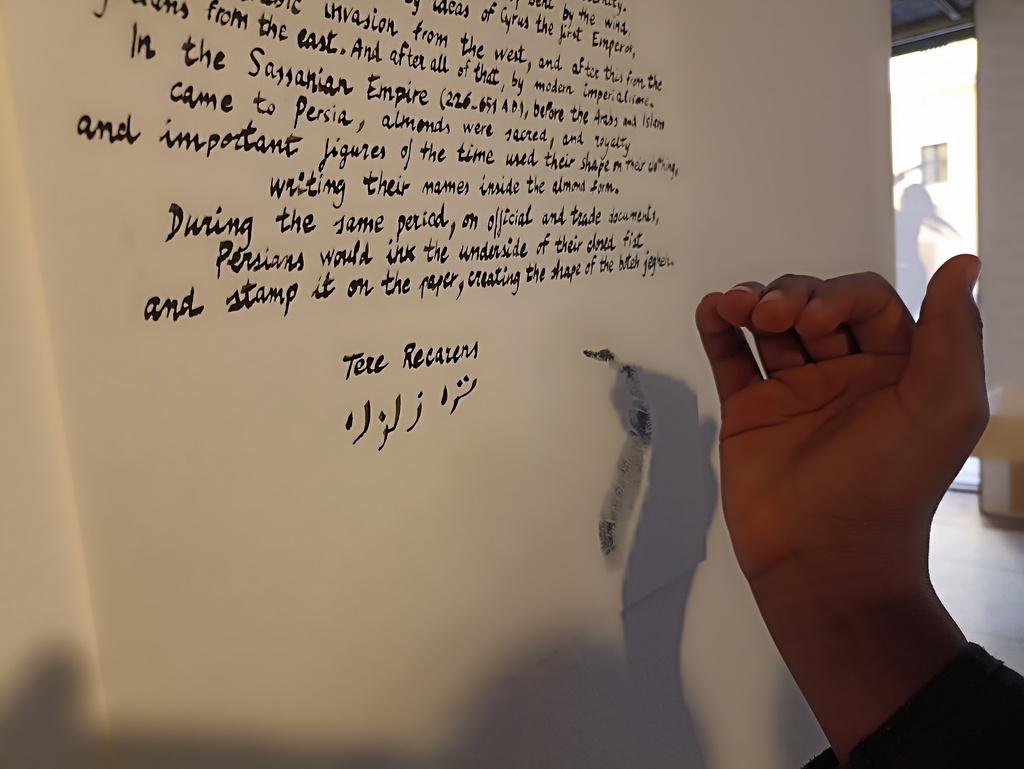 by ideas of Cyrus the first Emperor,
invasion from the west, and after this from the
from the east. And after all of that, by modern imperialisme.
In the Sassanian Empire (226-651 A.D.), before the Arabs and Islam
came to Persia, almonds were sacred, and royalty
and important figures of the time used their shape on their clothing,
writing their names inside the almond form.
During the same period, on official and trade documents,
Persians would ink the underside of their closed fist
and stamp it on the paper, creating the shape of the boteh jegheh.
Tere Recarens